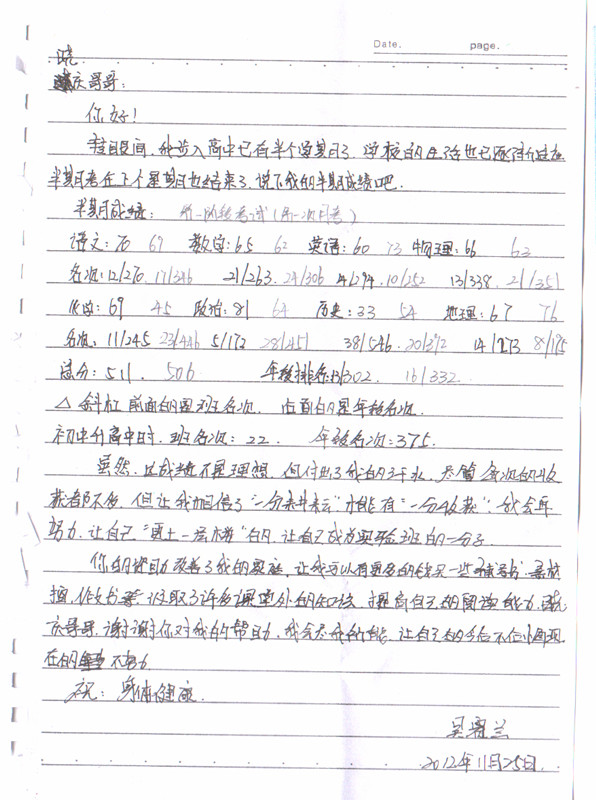 Date. page.
晓
庆哥哥:
你好!
转眼间,我步入高中已有半个学期了,学校的生活也已逐渐适应
半期考在上个星期也结束了,说下我的半期成绩吧.
半期成绩: 第一阶段考试(第一次月考)
语文:70 67 数学:65 62 英语:60 73 物理:66 63
名次:12/270 17/346 21/263 24/306 14/294 10/252 13/338 21/351
化学:69 45 政治:81 64 历史:33 54 地理:67 76
名次:11/245 23/446 5/172 28/451 38/546 20/392 14/273 8/175
总分:511. 506 年级排名 13/302 16/332
△斜杠前面的是班名次,后面的是年级名次.
初中升高中时,班名次:22. 年级名次:375.
虽然,此成绩不是理想,但付出了我的汗水,尽管每次的收
获都不多,但让我相信了"一分耕耘"才能有"一分收获".我会再
努力,让自己"更上一层楼"的,让自己成为实验班的一分子.
你的资助改善了我的家庭,让我可以有更多的钱买一些辅导书
作文书 汲取了许多课堂外的知识,提高自己的阅读能力.晓
庆哥哥,谢谢你对我的帮助,我会尽我所能,让自己的今后不会
在的 不努力
祝:身体健康.
2012年11月25日.